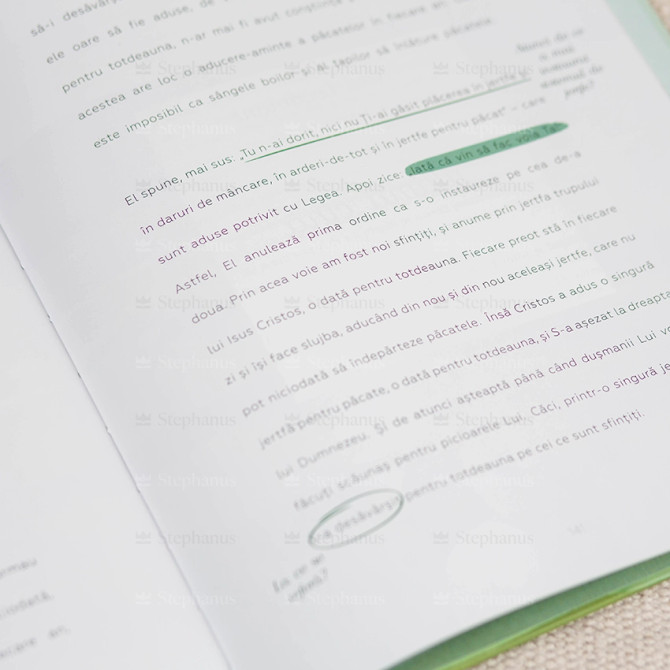 să-i desăvârș
ele oare să fie aduse, de
pentru totdeauna, n-ar mai fi avut conștiința
acestea are loc o aducere-aminte a păcatelor în fiecare an
este imposibil ca sângele boilor și al țapilor să înlăture păcatele.
El spune, mai sus: „Tu n-ai dorit, nici nu Ți-ai găsit plăcerea în jertfe și
în daruri de mâncare, în arderi-de-tot și în jertfe pentru păcat” – care
sunt aduse potrivit cu Legea. Apoi zice: „Iată că vin să fac voia Ta!”
Astfel, El anulează prima ordine ca s-o instaureze pe cea de-a
doua. Prin acea voie am fost noi sfințiți, și anume prin jertfa trupului
lui Isus Cristos, o dată pentru totdeauna. Fiecare preot stă în fiecare
zi și își face slujba, aducând din nou și din nou aceleași jertfe, care nu
pot niciodată să îndepărteze păcatele. Însă Cristos a adus o singură
jertfă pentru păcate, o dată pentru totdeauna, și S-a așezat la dreapta
lui Dumnezeu. Și de atunci așteaptă până când dușmanii Lui vo
făcuți scăunaș pentru picioarele Lui. Căci, printr-o singură je
a desăvârșit pentru totdeauna pe cei ce sunt sfințiți.
La ce se
Stephanus